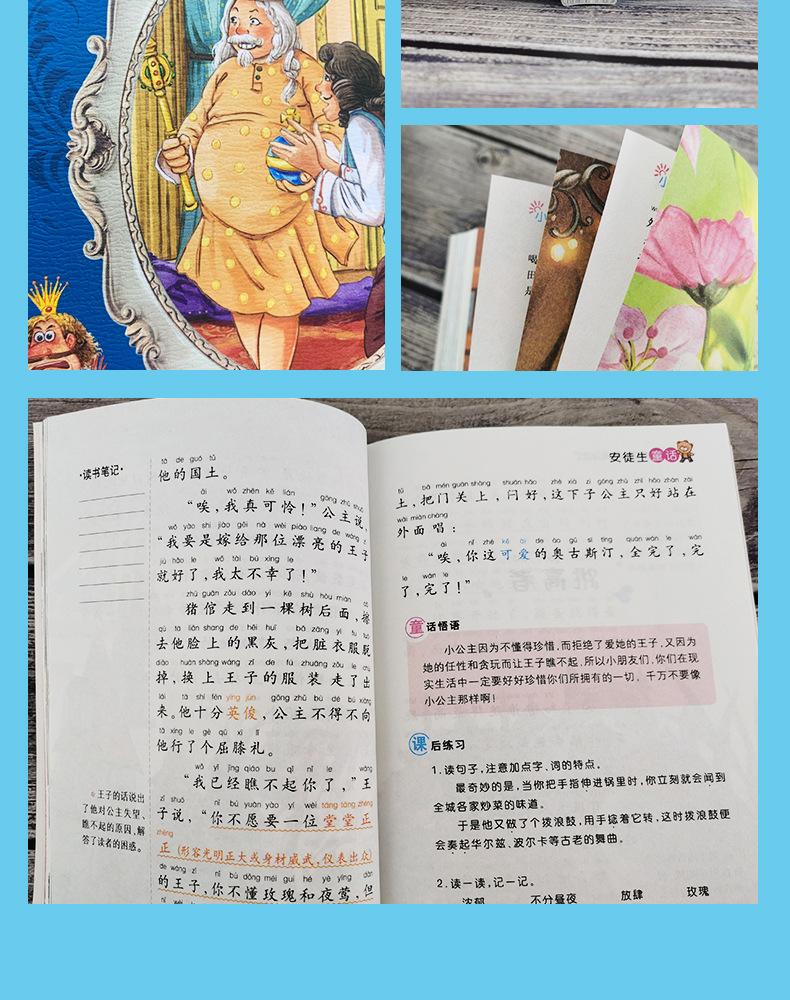 小
喝
田
是
小
tā de guó tǔ
·读书笔记·
他的国土。
ài wǒ zhēn kě lián gōng zhǔ shuō
“唉，我真可怜！”公主说，
wǒ yào shi jià gěi nà wèi piào liang de wáng zǐ
“我要是嫁给那位漂亮的王子
jiù hǎo le wǒ tài bú xìng le
就好了，我太不幸了！”
zhū guān zǒu dào yì kē shù hòu miàn cā
猪倌走到一棵树后面，擦
qù tā liǎn shang de hēi huī bǎ zāng yī fu tuō
去他脸上的黑灰，把脏衣服脱
diào huàn shàng wáng zǐ de fú zhuāng zǒu le chū
掉，换上王子的服装走了出
lái tā shí fēn yīng jùn gōng zhǔ bù dé bú xiàng
来。他十分英俊，公主不得不向
tā xíng le gè qū xī lǐ
他行了个屈膝礼。
wǒ yǐ jīng qiáo bu qǐ nǐ le wáng
“我已经瞧不起你了，”王
zǐ shuō nǐ bú yuàn yào yí wèi táng táng zhèng
子说，“你不愿要一位堂堂正
zhèng
正（形容光明正大或身材威武，仪表出众）
de wáng zǐ nǐ bù dǒng méi gui hé yè yīng dàn
的王子，你不懂玫瑰和夜莺，但
王子的话说出
了他对公主失望、
瞧不起的原因，解
答了读者的困惑。
安徒生童话
tǔ bǎ mén guān shàng shuān hǎo zhè xià zi gōng zhǔ zhǐ hǎo zhàn zài
土，把门关上，闩好，这下子公主只好站在
wài miàn chàng
外面唱：
ài nǐ zhè kě ài de ào gǔ sī tīng quán wán le wán
“唉，你这可爱的奥古斯汀，全完了，完
le wán le
了，完了！”
童话悟语
小公主因为不懂得珍惜，而拒绝了爱她的王子，又因为
她的任性和贪玩而让王子瞧不起，所以小朋友们，你们在现
实生活中一定要好好珍惜你们所拥有的一切。千万不要像
小公主那样啊！
课后练习
1.读句子，注意加点字、词的特点。
最奇妙的是，当你把手指伸进锅里时，你立刻就会闻到
全城各家炒菜的味道。
于是他又做了个拨浪鼓，用手捻着它转，这时拨浪鼓便
会奏起华尔兹、波尔卡等古老的舞曲。
2.读一读，记一记。
浓郁 不分昼夜 放肆 玫瑰